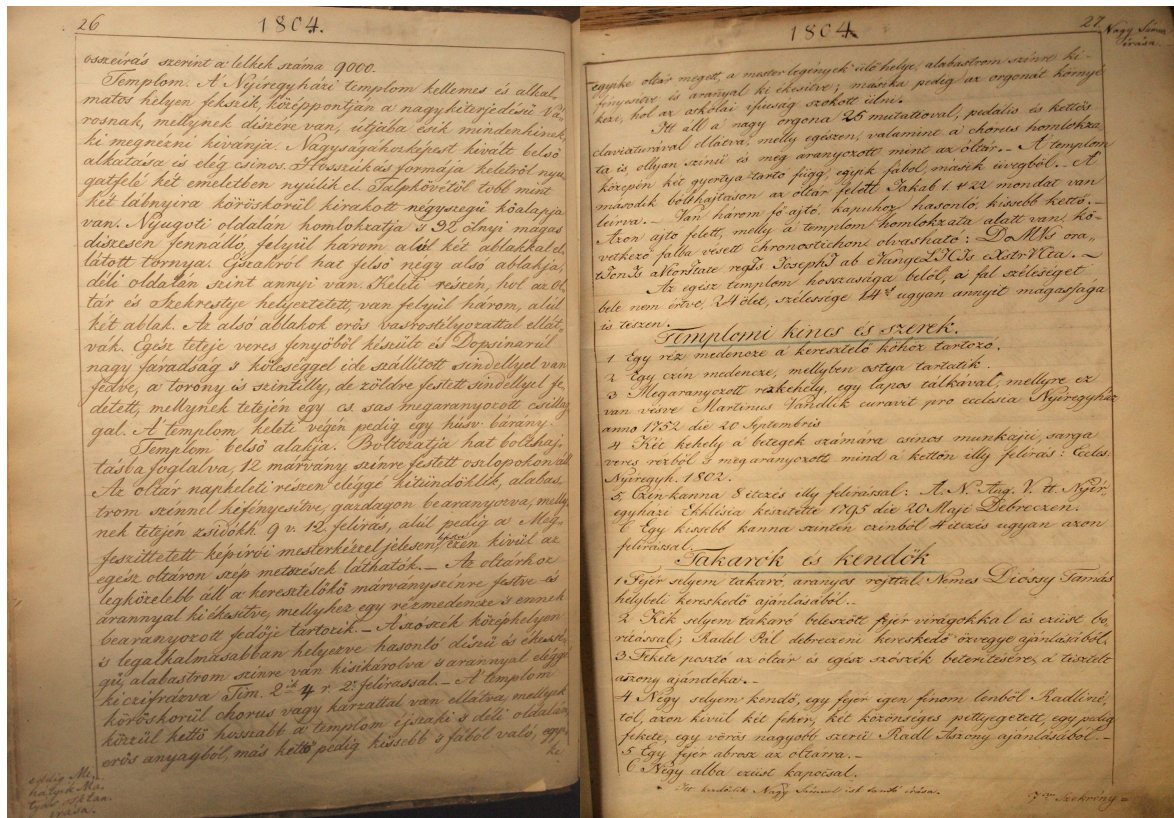 26
1804.
összeírás szerint a' lelkek száma 9000.
Templom. A' Nyíregyházi templom kellemes és alkal
matos helyen fekszik, középpontján a nagykiterjedésű Vá-
rosnak, mellynek díszére van, utjába esik mindenkinek,
ki megnézni kívánja. Nagyságáhozképest kivált belső
alkatása is elég csinos. Hosszúkás formája keletről nyu
gatfelé két emeletben nyúlik el. Talpkövétől több mint
két lábnyira köröskörül kirakott négyszegű kőalapja
van. Nyugoti oldalán homlokzatja 's 92 ölnyi magas
díszesen fennálló, felyül három alúl két ablakkal el
látott tornya. Éjszakról hat felső négy alsó ablakja,
déli oldalán szint annyi van. Keleti részén, hol az Ol-
tár és Sekrestye helyeztetett, van felyül három, alúl
két ablak. Az alsó ablakok erős vasrostélyozattal ellát-
vák. Egész teteje veres fenyőből készült és Dopsinarúl
nagy fáradság 's költséggel ide szállított sindellyel van
fedve, a' torony is szintúlly, de zöldre festett sindellyel fe-
detett, mellynek tetején egy cs. sas megaranyozott csillag
gal. A' templom keleti végén pedig egy húsv. bárány.
Templom belső alakja. Boltozatja hat boltthaj
tásba foglalva, 12 márvány színre festett oszlopokon áll
Az oltár napkeleti részen eléggé kitündöklik, alabas
trom színnel kifényesítve, gazdagon bearanyozva, melly
nek tetején zsidókh. 9 v. 12. felírás, alúl pedig a' Meg-
feszíttetett képirói mesterkézzel jelesen, ezen kivül az
egész oltáron szép metszések láthatók. – Az oltárhoz
legközelebb áll a keresztelőkő márványszínre festve és
arannyal kiékesítve, mellyhez egy rézmedencze 's ennek
bearanyozott fedője tartozik. – A szószék középhelyen
's legalkalmasabban helyezve hasonló díszű és
gű, alabastrom színre van kisikárolva 's arannyal eléggé
kiczifrázva Tim. 2ik 4 r. 2. felírással. – A' templom
köröskörül chorus vagy karzattal van ellátva, mellyek
közzül kettő hosszabb a templom éjszaki 's déli oldalán,
erős anyagból, más kettő pedig kissebb 's fából való, egyi-
ke
eddig Mi-
halyik Ma-
tyás
irása.
27.
Nagy Sám
irása.
1804.
egyike oltár megett, a mesterlegények ülő helye, alabastrom színre ki
fényesítve és aranyal ki ékesítve; másika pedig az orgonát környé
kezi, hol az oskolai ifjuság szokott ülni.
Itt áll a nagy orgona 25 mutatioval, pedális és kettős
claviaturával ellátva, melly egészen, valamint a chorus homlokza
ta is, ollyan színű és meg aranyozott mint az oltár. – A templom
közepén két gyertya tartó függ, egyik fából, másik üvegből. – A
második bolthajtáson az oltár felett Jakab 1. v 22 mondat van
leírva. – Van három fő ajtó, kapuhoz hasonló, kissebb kettő. –
Azon ajtó felett, melly a templom homlokzata alatt van, kö-
vetkező falba vésett chronostichon olvasható: DoMVs ora-
tIonIs aVtorItate regIs JosephI ab eVangeLICIs eXstrVCta. –
Az egész templom hosszasága belől, a fal szélességet
bele nem értve, 24 ölet, szélessége 14et ugyan annyit magassága
is teszen.
Templomi kincs és szerek.
1 Egy réz medencze a keresztelő kőhöz tartozó.
2 Egy czin medencze, mellyben ostya tartatik.
3 Megaranyozott rézkehely, egy lapos tálkával, mellyre ez
van vésve Martinus Vandlik curavit pro ecclesia Nyiregyház
anno 1752 die 20 Septembris
4 Két kehely a betegek számára csinos munkáju, sarga
veres rézből 's megaranyozott mind a kettőn illy felírás: Eccles.
Nyíregyh. 1802.
5 Czin kanna 8 itczés illy felírással: A. N. Aug. V. tt. Nyír,
egyházi Ekklésia készítette 1795 die 20 Maji Debreczen.
6 Egy kissebb kanna szintén czinből 4 itczés ugyan azon
felírással.
Takarók és kendők
1 Fejér selyem takaró, aranyos rojttal, Nemes Dióssy Tamás
helybeli kereskedő ajánlásából. –
2 Kék selyem takaró beleszőtt fejér virágokkal és ezüst bo-
rítással; Radel Pál debreczeni kereskedő özvegye ajánlásából.
3 Fekete posztó az oltár és egész szószék beterítésére, a' tisztelt
aszony ajándéka. –
4 Négy selyem kendő, egy fejér igen finom lenből Radliné
től, azon kivül két fehér, két közönséges pettyegetett, egy pedig
fekete, egy vörös nagyobb szerű Radl Aszony ajánlásából. –
5 Egy fejér abrosz az oltárra. –
6 Négy alba ezüst kapocsal.
Itt kezdődik Nagy Sámuel ist. tanító irása.
7r Szekrény =